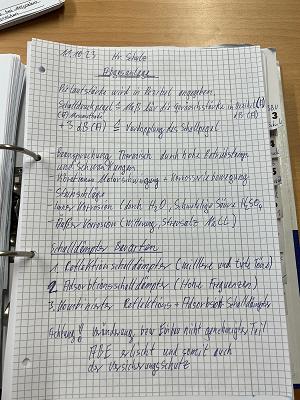 11.10.23 Hr. Schulz
Abgasanlage
Die Lautstärke wird in Dezibel angegeben.
Schalldruckpegel ≙ Maß für die Geräuschstärke in Dezibel (A)
dB (A)
+ 3 dB (A) ≙ Verdopplung des Schallpegel
- Beanspruchung Thermisch durch hohe Betriebstemp.
und Schwankungen
- Vibrationen Motorschwingung + Karosseriebewegung
- Steinschläge
- Innere Korrosion (durch H₂O, Schwefelige Säure H₂SO₄
- Äußere Korrosion (Witterung, Streusalz NaCl)
Schalldämpfer Bauarten
1. Reflektionsschalldämpfer (mittlere und tiefe Töne)
2. Adsorptionsschalldämpfer (Hohe Frequenzen)
3. Kombinierter Reflektions + Adsorbtions Schalldämpfer
Achtung!! Veränderung bzw Einbau nicht genehmigter Teil
ABE erlischt und somit auch
der Versicherungsschutz